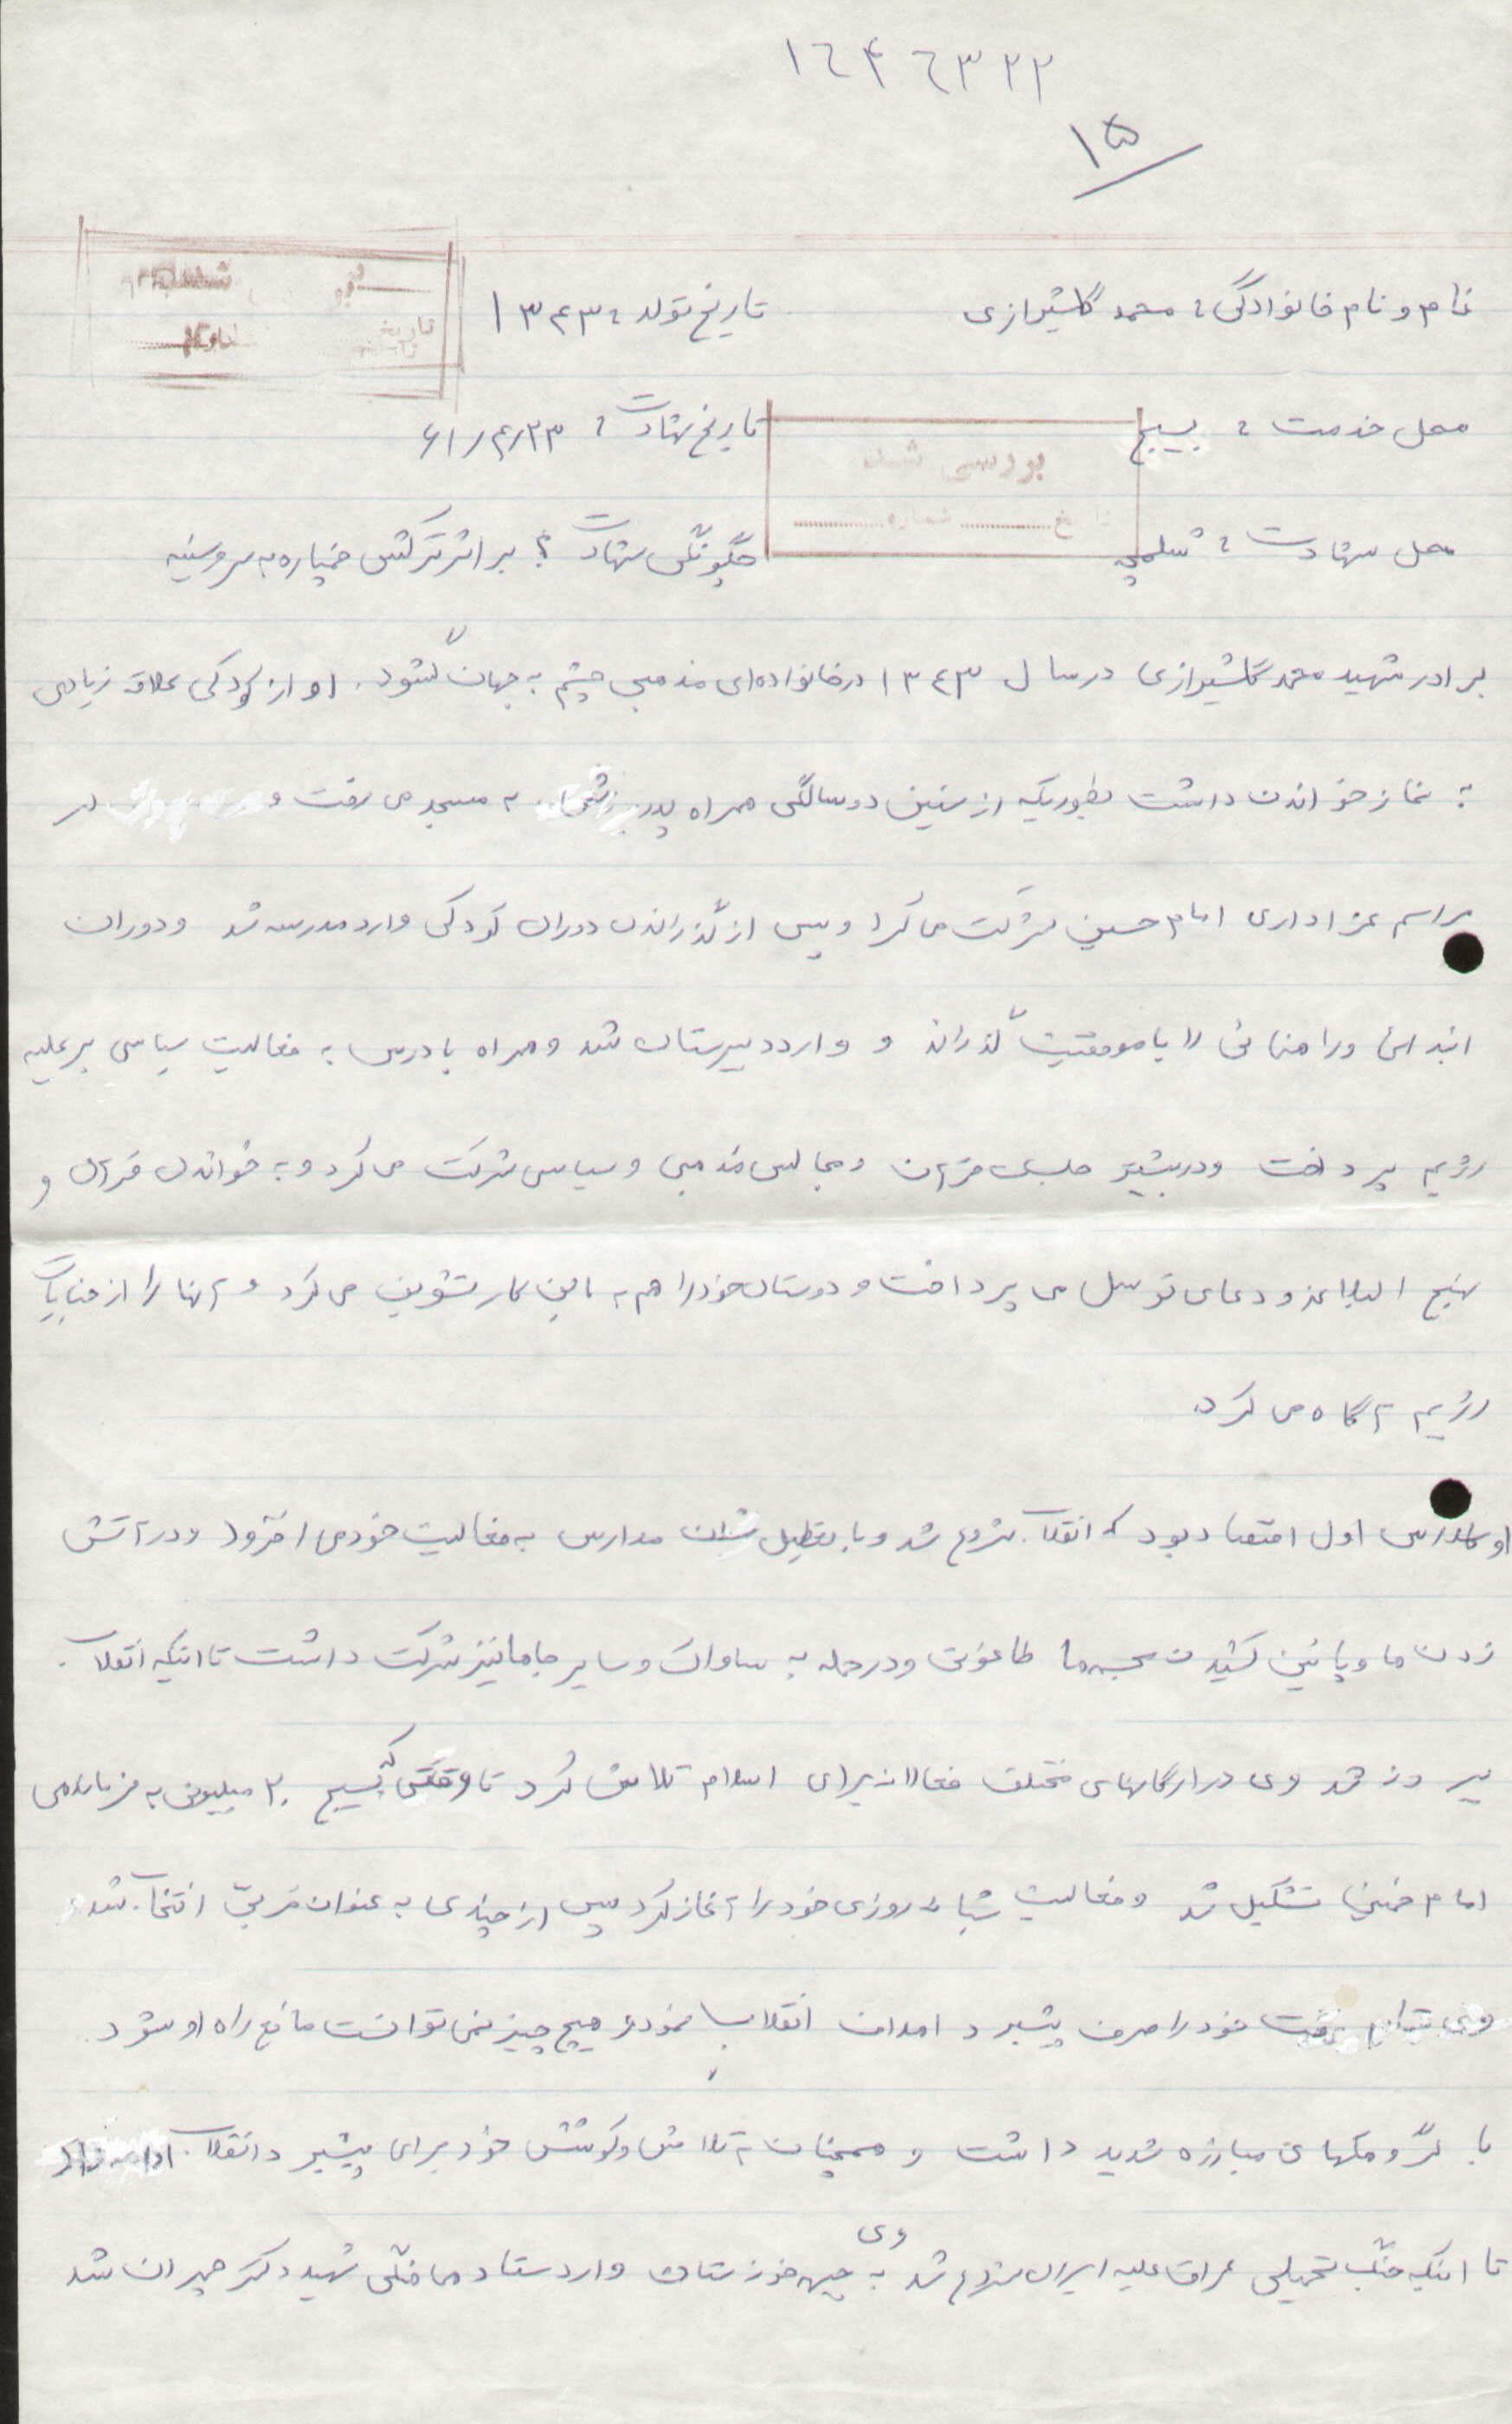 ۱۶۴۶۳۲۲
۱۵
نام و نام خانوادگی : محمد گلشیرازی تاریخ تولد : ۱۳۴۳
محل خدمت : بسیج تاریخ شهادت : ۶۱/۴/۲۳
بررسی شد
تاریخ شماره
محل شهادت : شلمچه چگونگی شهادت ؟ بر اثر ترکش خمپاره به سر و سینه
برادر شهید محمد گلشیرازی در سال ۱۳۴۳ در خانواده‌ای مذهبی چشم به جهان گشود . او از کودکی علاقه زیادی
به نماز خواندن داشت بطوریکه از سنین دو سالگی همراه پدر به مسجد می رفت و در
مراسم عزاداری امام حسین شرکت می کرد و پس از گذراندن دوران کودکی وارد مدرسه شد و دوران
ابتدائی و راهنمائی را با موفقیت گذراند و وارد دبیرستان شد و همراه با درس به فعالیت سیاسی بر علیه
رژیم پرداخت و در بیشتر جلسات قرآن و مجالس مذهبی و سیاسی شرکت می کرد و به خواندن قرآن و
نهج البلاغه و دعای توسل می پرداخت و دوستان خود را هم به این کار تشویق می کرد و آنها را از جنایات
رژیم آگاه می کرد.
او کلاس اول اقتصاد بود که انقلاب شروع شد و با تعطیل شدن مدارس به فعالیت خود می افزود و در آتش
زدن ها و پائین کشیدن مجسمه ها طاغوتی و در حمله به ساواک و سایر جاها نیز شرکت داشت تا اینکه انقلاب
پیروز شد وی در ارگانهای مختلف فعالانه برای اسلام تلاش کرد تا وقتی که بسیج ۲۰ میلیونی به فرماندهی
امام خمینی تشکیل شد و فعالیت شبانه روزی خود را آغاز کرد پس از چندی به عنوان مربی انتخاب شد
وی تمام وقت خود را صرف پیشبرد اهداف انقلاب نمود و هیچ چیز نمی توانست مانع راه او شود .
با گروهکهای مبارزه شدید داشت و همچنان به تلاش و کوشش خود برای پیشبرد انقلاب ادامه داد
تا اینکه جنگ تحمیلی عراق علیه ایران شروع شد وی به جبهه خوزستان وارد ستادهای جنگی شهید دکتر چمران شد